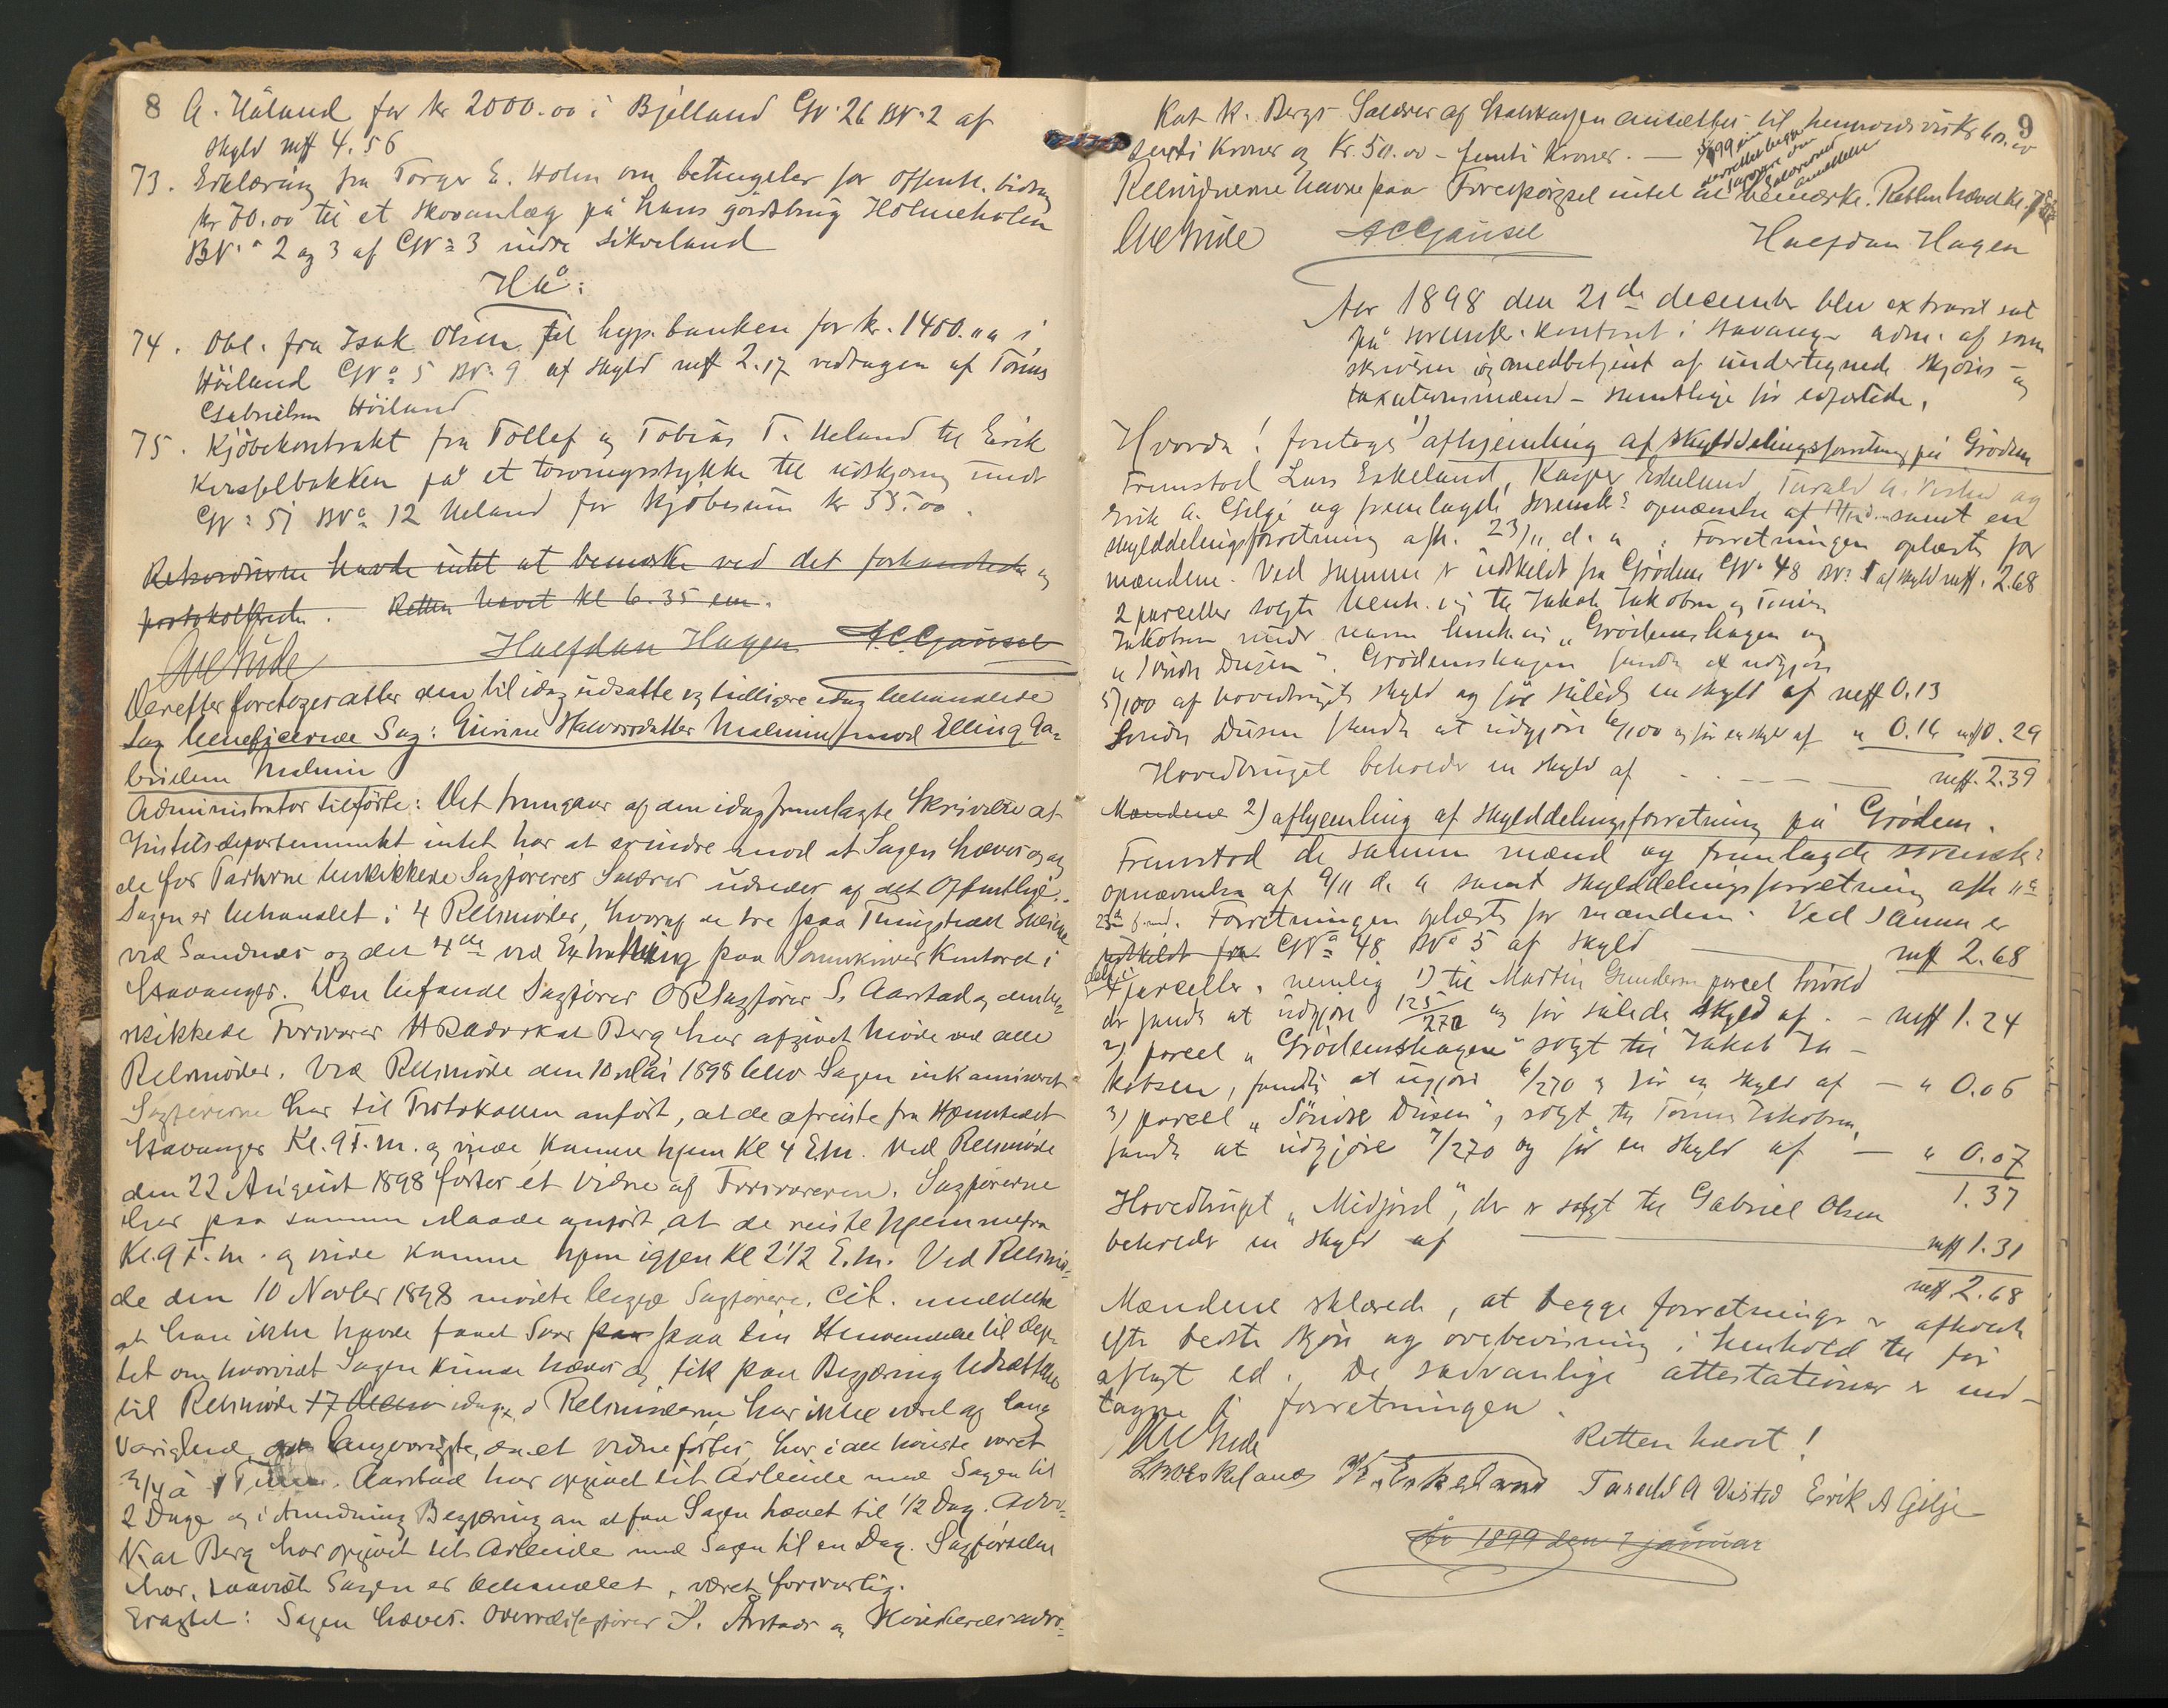 8 A. Håland for kr 2000.00 i Bjelland GN: 26 BN: 2 af
skyld mk 4.56
73. Erklæring fra Torger E. Holm om betingelser for offentl. bidrag
kr 70.00 til et skovanlæg på hans gårdsbrug Holmeholen
BN: 2 og 3 af GN: 3 indre Sikveland
Hå:
74. Obl. fra Isak Olsen til hyp. banken for kr. 1400.00 i
Höiland GNo 5 BN: 9 af skyld mk 2.17 vedtagen af Tönnes
Gabrielsen Höiland
75. Kjöbekontrakt fra Tollef og Tobias T. Ueland til Erik
på et torvmyrstykke til udskjæring under
GN: 51 BNo 12 Ueland for kjöbesum kr 335.00.
Retsvidnerne havde intet at bemærke ved det forhandlede og
protokollerede. Retten hævet kl 6.35 em.
Halfdan Hagen A.C. Gausel
Derefter foretoges atter den til idag udsatte og tidligere idag behandlede
Sag beneficerede Sag: Gurine Halvorsdatter Malmin mod Elling Ga-
brielsen Malmin
Administrator tilförte: Det fremgaar af den idag fremlagte Skrivelse at
Justitsdepartementet intet har at erindre mod at Sagen hæves og at
de for Parterne beskikkede Sagföreres Salærer udredes af det Offentlige.
Sagen er behandlet i 4 Retsmöder, hvoraf de tre paa Thingstedet Skeiene
ved Sandnæs og det 4de ved Extrathing paa Sorenskriver Kontoret i
Stavanger. Den befalede Sagförer ORSagförer S. Aarstad og den be-
skikkede Forsvarer HRadvokat Berg har afgivet Möde ved alle
Retsmöder. Ved Retsmöde den 10 Mai 1898 blev Sagen inkamineret
Sagförerne har til Protokollen anfört, at de afreiste fra Hjemstedet
Stavanger Kl. 9 F.m. og vilde komme hjem Kl 4 E.m. Ved Retsmöde
den 22 August 1898 förtes et Vidne af Forsvareren. Sagförerne
har paa samme Maade anfört at de reiste hjemmefra
Kl. 9 F.m. og vilde komme hjem igjen Kl 2 1/2 E.m. Ved Retsmö-
de den 10 Novber 1898 mödte begge Sagförere. Cit. meddelte
at han ikke havde faaet Svar paa paa sin Henvendelse til Dep-
tet om hvorvidt Sagen kunde hæves og fik paa Begjæring Udsættelse
til Retsmöde 17 idag. Retsmöderne har ikke været af lang
Varighed langvarigste, da et Vidne förtes, har i det höieste varet
3/4 à 1 Time. Aarstad har opgivet sit Arbeide med Sagen til
2 Dage og i Anledning Begjæring om at faa Sagen hævet til 1/2 Dag. Advo-
kat Berg har opgivet sit Arbeide med Sagen til en Dag. Sagförselen
har, saavidt Sagen er behandlet, været forsvarlig.
Eragtet: Sagen hæves. Overretssagförer S. Årstads og Höiesteretsadvo-
9
kat K. Bergs Salærer af Statskassen ansættes til henholdsvis Kr 60.00
sexti Kroner og Kr. 50.00 - femti Kroner. —
Retsvidnerne havde paa Forespörgsel intet at bemærke. Retten hævet Kl.
A.C. Gausel Halfdan Hagen
Aar 1898 den 21de december blev extraret sat
på sorenskr. kontoret i Stavanger adm. af soren
skriveren og medbetjent af undertegnede skjöns - og
taxationsmænd - samtlige før edfæstede.
Hvorda! foretoges 1) afhjemling af skylddelingsforretning på Grödem
Fremstod Lars Eskeland, Kasper Eskeland, Tarald A. Visted og
Erik A. Gilje og fremlagde sorenskr: opnævnelse af samt en
skylddelingsforretning afh. 23/11 d. a. Forretningen oplæstes for
mændene. Ved samme er udskildt fra Grödem GN: 48 BN: 1 af skyld mk. 2.68
2 parceller solgte henh. vis til Jakob Jakobsen og Tönnes
Jakobsen under navn henh. vis "Grödemshagen" og
"Söndre Dusen". Grödemshagen fandtes at udgjöre
5/100 af hovedbrugets skyld og får således en skyld af mk 0.13
Söndre Dusen fandtes at udgjöre 6/100 og får en skyld af " 0.16 mk 0.29
Hovedbruget beholder en skyld af — mk. 2.39
Mændene 2) afhjemling af skylddelingsforretning på Grödem.
Fremstod de samme mænd og fremlagde sorenskr:
opnævnelse af 9/11 d. a. samt skylddelingsforretning afh.
23de s. md. Forretningen oplæstes for mændene. Ved samme er
udskildt fra GNo 48 BNo 5 af skyld — mk 2.68
delt i 4 parceller, nemlig 1) til Martin Gundersen parcel
der fandtes at udgjöre 125/270 og får således skyld af - mk 1.24
2) parcel "Grödemshagen" solgt til Jakob Ja-
kobsen, fandtes at udgjöre 6/270 og får en skyld af — " 0.06
3) parcel "Söndre Dusen", solgt til Tönnes Jakobsen,
fandtes at udgjöre 7/270 og får en skyld af — " 0.07
1.37
Hovedbruget "Midjord", der er solgt til Gabriel Olsen
beholder en skyld af — mk 1.31
mk 2.68
Mændene erklærede, at begge forretninger er afholdt
efter bedste skjön og overbevisning i henhold til för
aflagt ed. De sedvanlige attestationer er ind-
tagne i forretningen.
Retten hævet!
L. Eskeland K. Eskeland Tarald A Visted Erik A Gilje
År 1899 den 7 januar